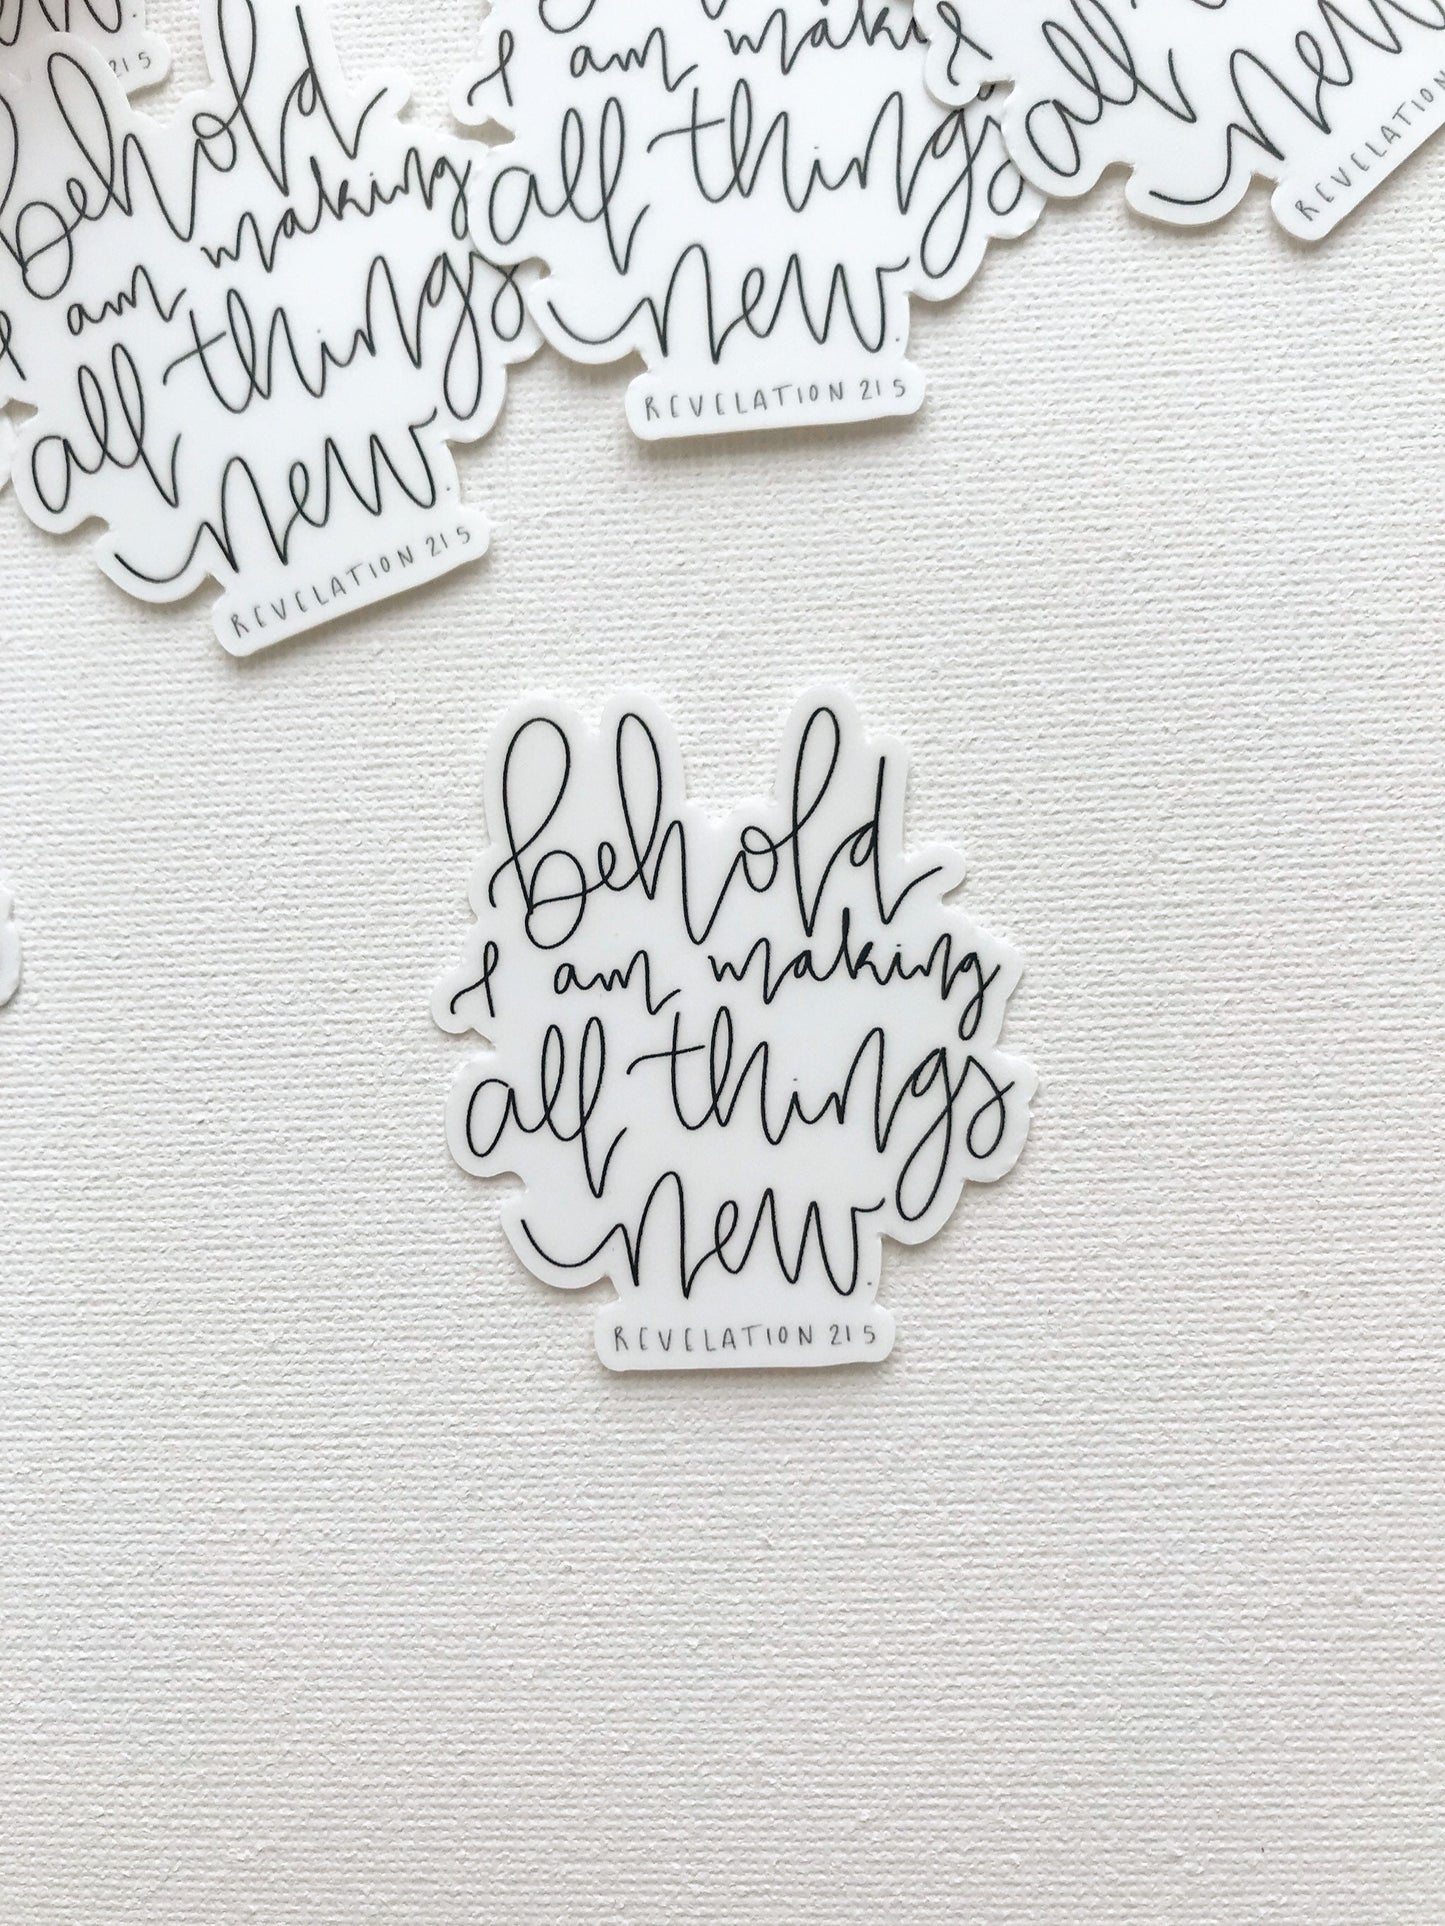 215
behold
I am making
all things
new.
REVELATION 215
I am maki
all things
new.
REVELATION 215
I
all
new
REVELATION
behold
I am making
all things
new.
REVELATION 215